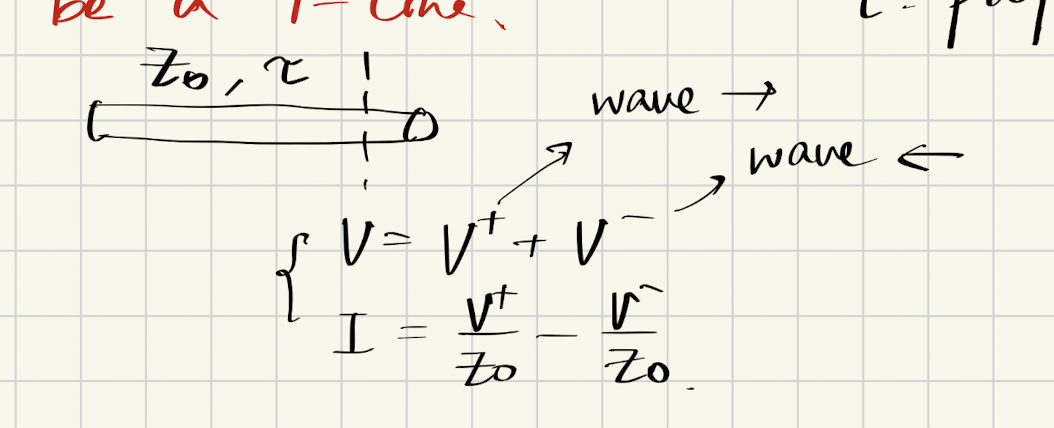 be a T-line.
Z₀, τ
wave →
wave ←
V = V⁺ + V⁻
I = V⁺/Z₀ − V⁻/Z₀.